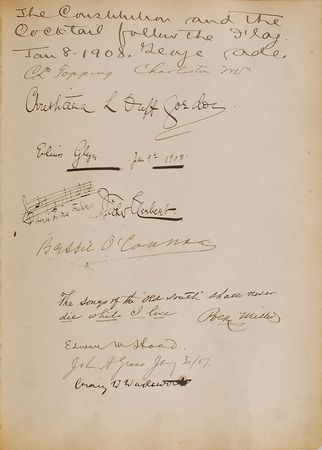 The Constitution and the
Cocktail follow the Flag.
Jan 8 - 1908. George Ade.
Topping Charleston
Christiana L Duff Gordon.
Elinor Glyn Jan 9th 1908.
Victor Herbert.
Bessie O'Connor
The songs of the "old south" shall never
die while I live
Edwin W
John A Gross Jany 30/07.
Craig W Wadsworth